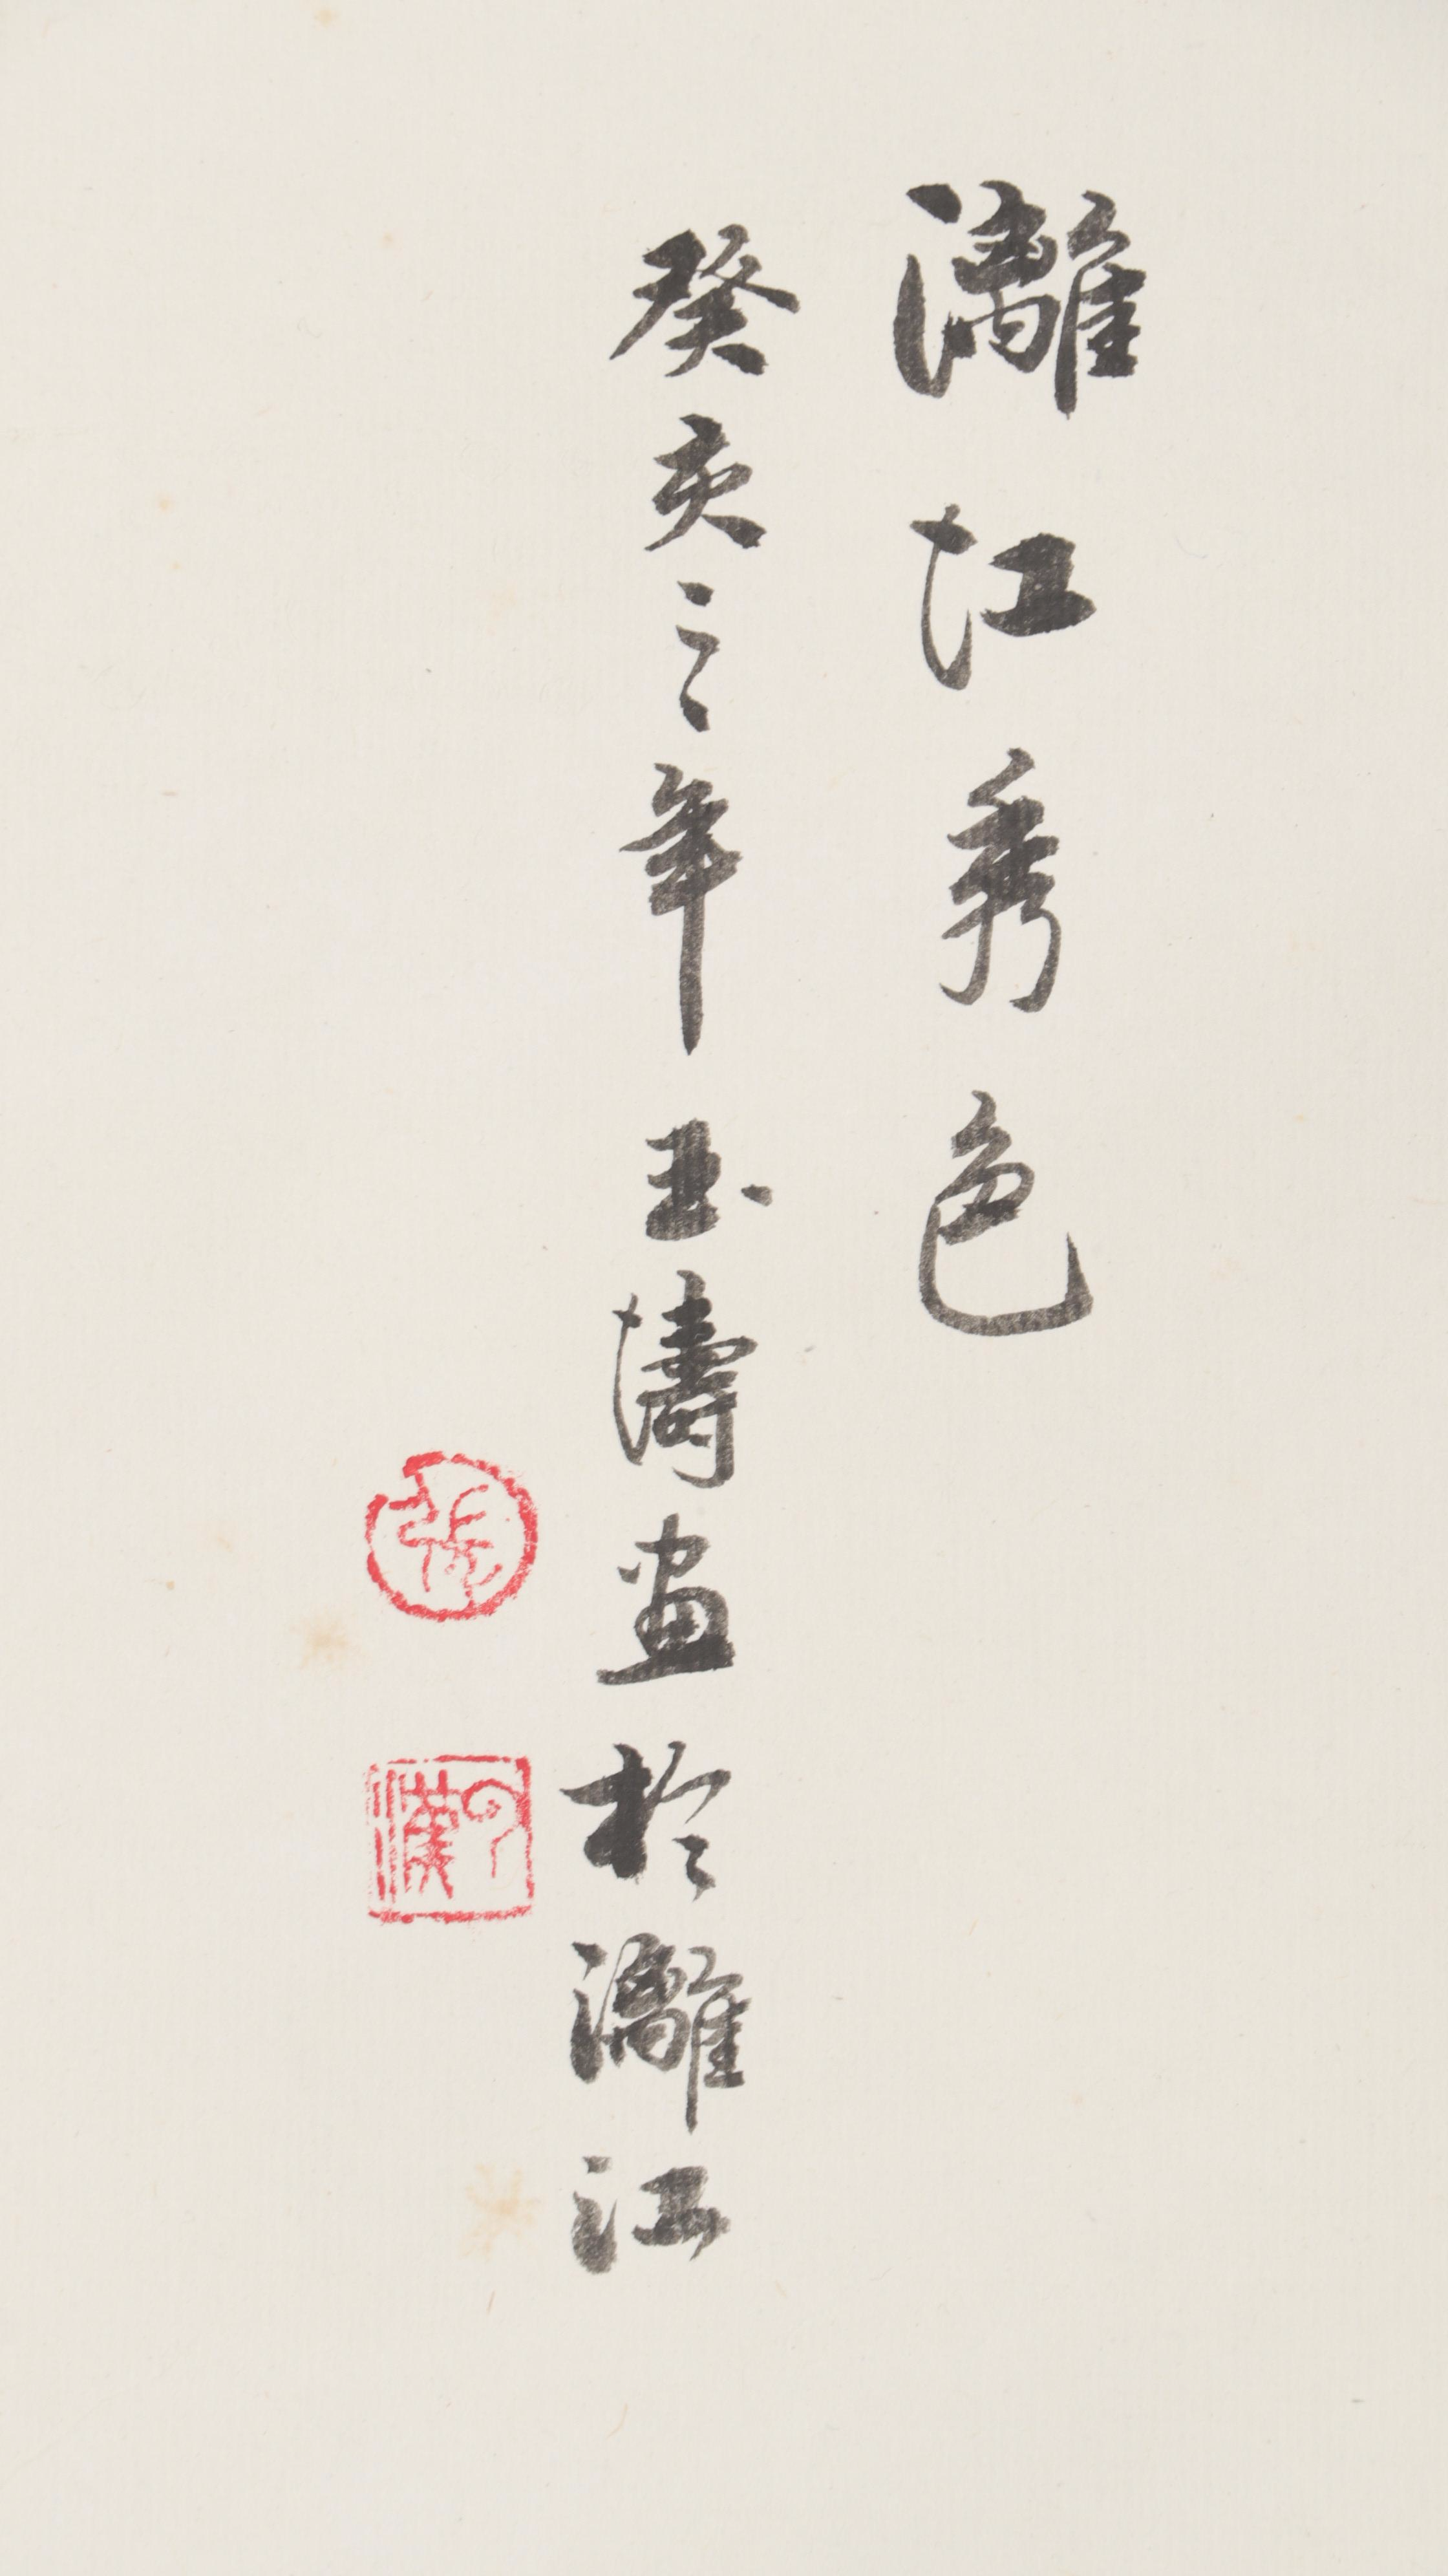 灕江秀色
癸亥之年玉濤畫於灕江
張